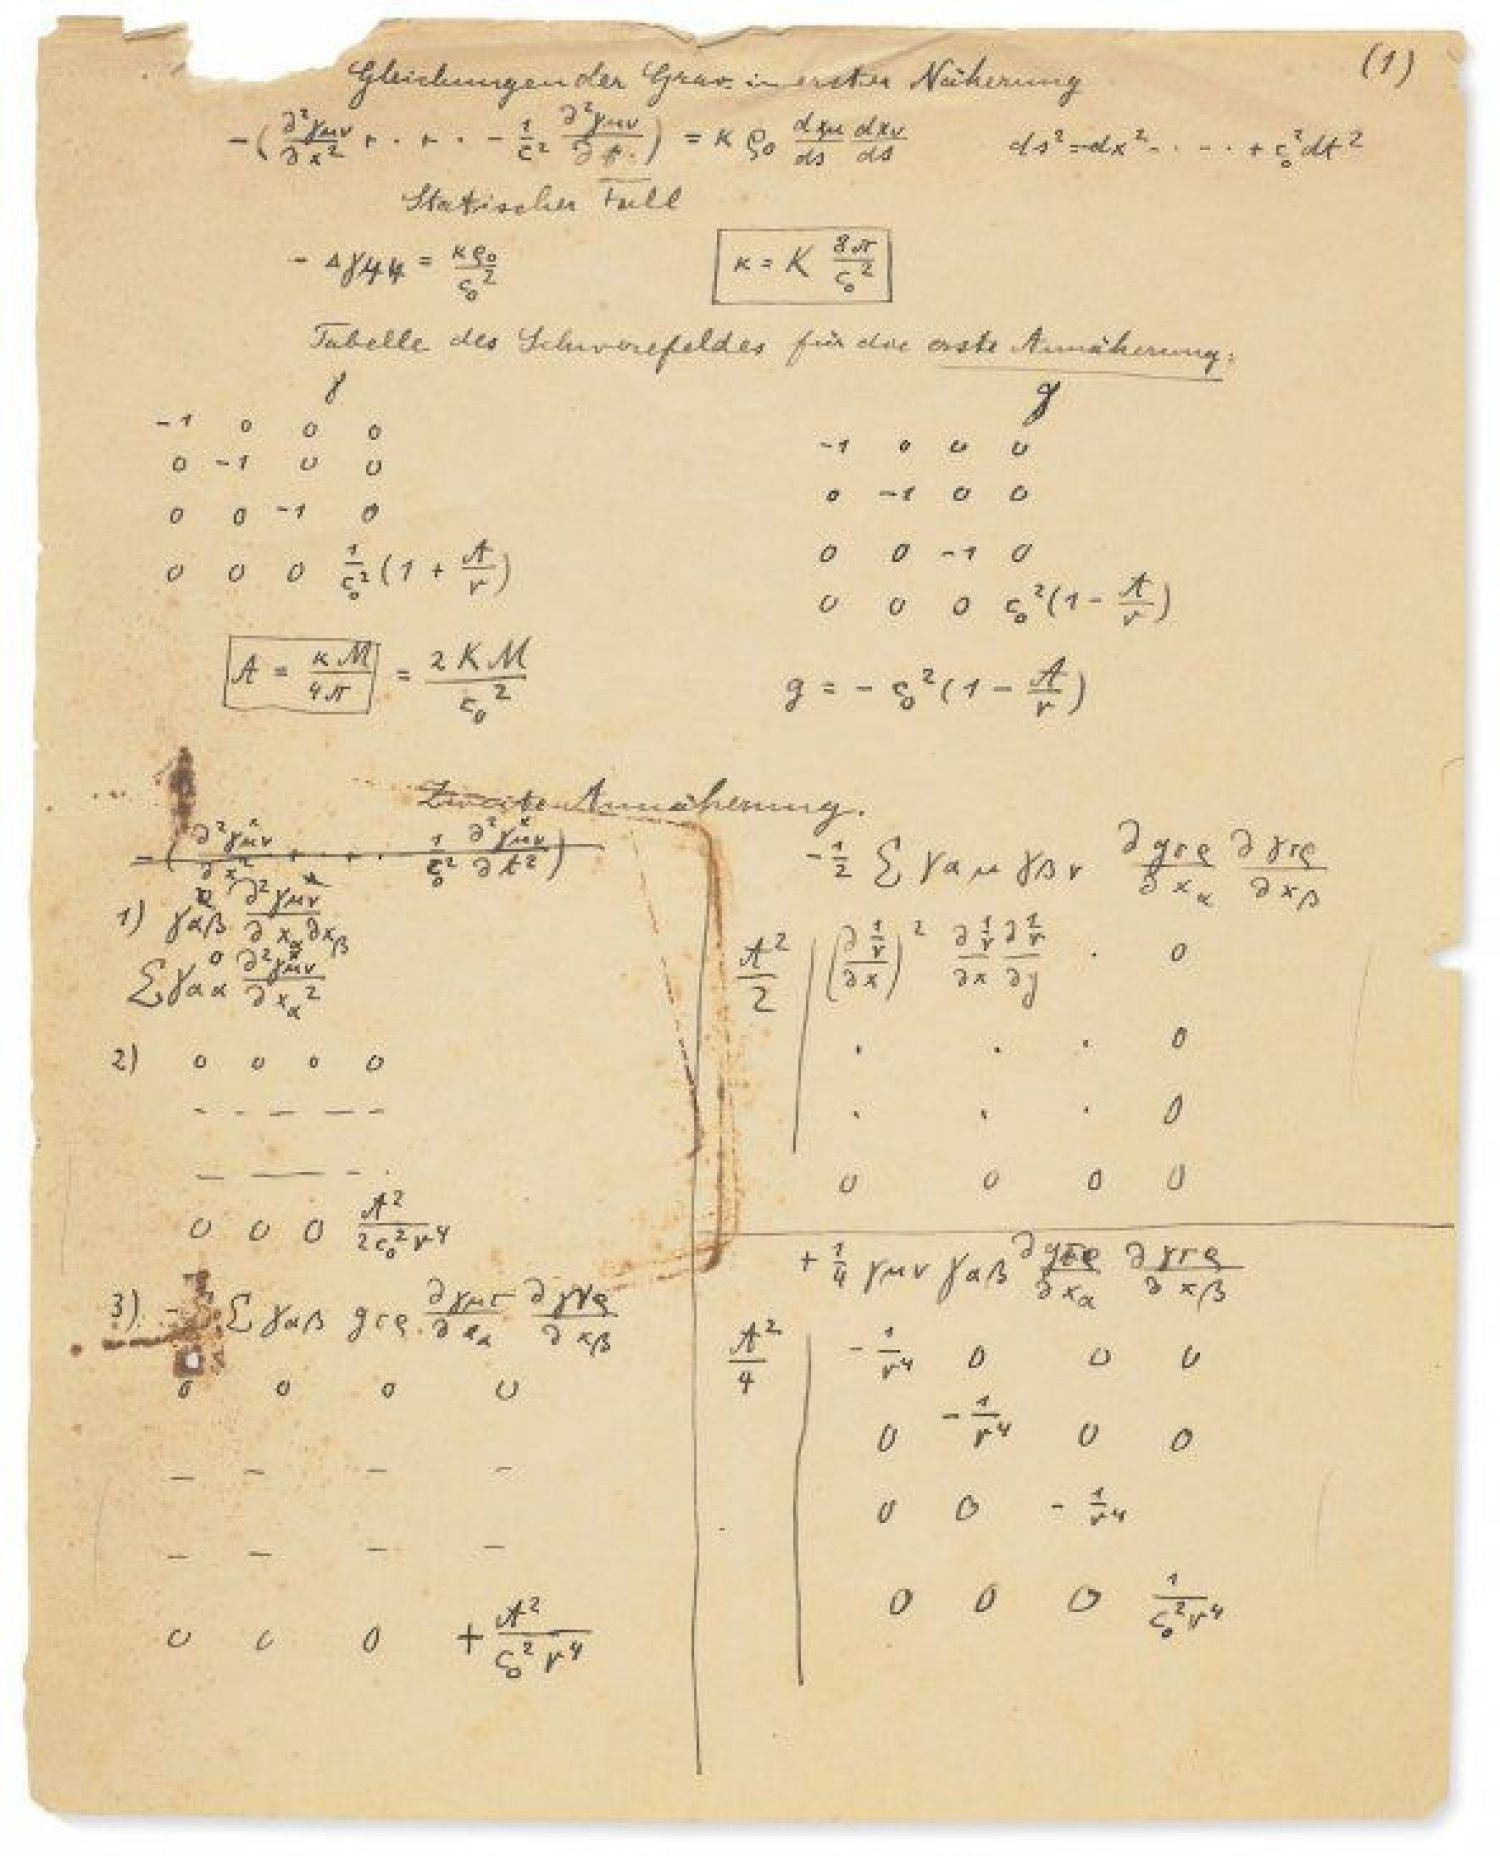 (1)
Gleichungen der Grav. in erster Näherung
−(∂²γμν/∂x² + · + · − 1/c² ∂²γμν/∂t²) = κ ρ₀ dxμ/ds dxν/ds    ds² = −dx² − · − · + c₀²dt²
Statischer Fall
− Δγ44 = κρ₀/c₀²    κ = K 8π/c₀²
Tabelle des Schwerefeldes für die erste Annäherung.
γ    g
−1 0 0 0    −1 0 0 0
0 −1 0 0    0 −1 0 0
0 0 −1 0    0 0 −1 0
0 0 0 1/c₀²(1 + A/r)    0 0 0 c₀²(1 − A/r)
A = κM/4π = 2KM/c₀²    g = − c₀²(1 − A/r)
Zweite Annäherung.
−(∂²γμν^x/∂x² + · + · − 1/c₀² ∂²γμν^x/∂t²)
1) γαβ ∂²γμν^x/∂xα∂xβ
Σ γαα^0 ∂²γμν^x/∂xα²
2) 0 0 0 0
- - - - -
— — - ·
0 0 0 A²/2c₀²r⁴
3) − Σ γαβ gτρ ∂γμτ/∂xα ∂γνρ/∂xβ
0 0 0 0
− − − −
− − − −
0 0 0 + A²/c₀²r⁴
−1/2 Σ γαμ γβν ∂gτρ/∂xα ∂γτρ/∂xβ
A²/2 | (∂1/r/∂x)² ∂1/r/∂x ∂1/r/∂y · 0
· · · 0
· · · 0
0 0 0 0
+ 1/4 γμν γαβ ∂gτρ/∂xα ∂γτρ/∂xβ
A²/4 | −1/r⁴ 0 0 0
0 −1/r⁴ 0 0
0 0 −1/r⁴
0 0 0 1/c₀²r⁴